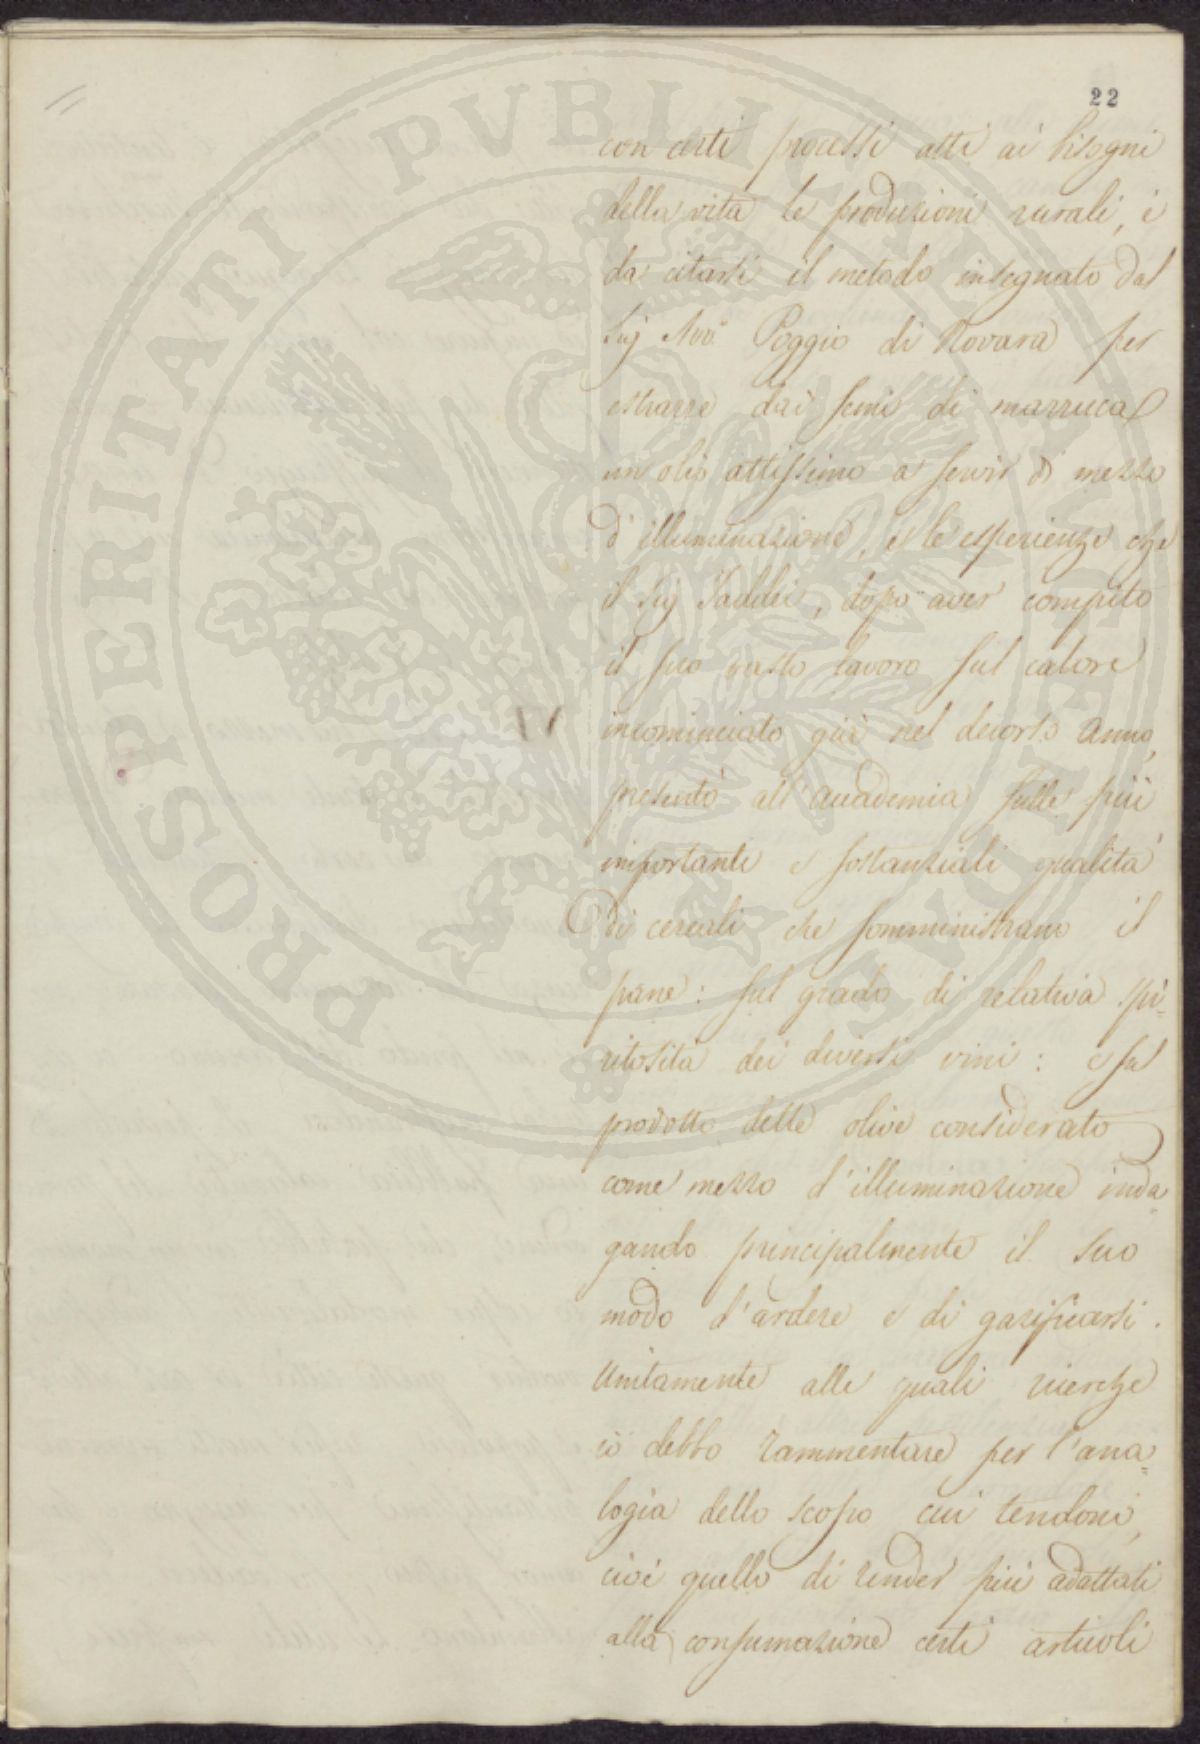 22
con certi processi atti ai bisogni
della vita le produzioni rurali, è
da citarsi il metodo insegnato dal
Sig Avv.o Poggio di Novara per
estrarre dai semi di marruca
un olio attissimo a servir di mezzo
d'illuminazione, e le esperienze che
il Sig Taddei, dopo aver compito
il suo vasto lavoro sul calore
incominciato già nel decorso anno,
presentò all'Accademia sulle più
importanti e sostanziali qualità
di cereali che somministrano il
pane: sul grado di relativa spi=
ritosità dei diversi vini: e sul
prodotto delle olive considerato
come mezzo d'illuminazione inda=
gando principalmente il suo
modo d'ardere e di gazificarsi.
Unitamente alle quali ricerche
io debbo rammentare per l'ana=
logia dello scopo cui tendono,
cioè quello di render più adattati
alla consumazione certi articoli
PROSPERITATI PVBLICAE AVGENDAE